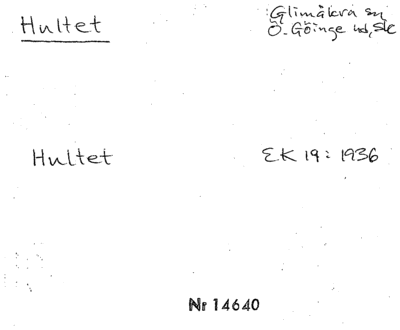 Hultet
Glimåkra sn
Ö. Göinge hd, Sk
Hultet
EK 19: 1936
Nr 14640